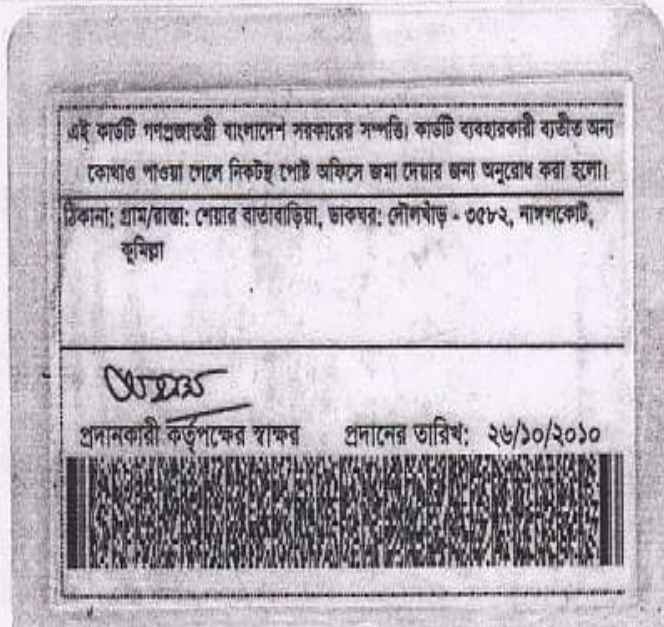 এই কার্ডটি গণপ্রজাতন্ত্রী বাংলাদেশ সরকারের সম্পত্তি। কার্ডটি ব্যবহারকারী ব্যতীত অন্য
কোথাও পাওয়া গেলে নিকটস্থ পোষ্ট অফিসে জমা দেয়ার জন্য অনুরোধ করা হলো।
ঠিকানা: গ্রাম/রাস্তা: শেয়ার বাতাবাড়িয়া, ডাকঘর: দৌলখাঁড় - ৩৫৮২, নাঙ্গলকোট,
কুমিল্লা
প্রদানকারী কর্তৃপক্ষের স্বাক্ষর প্রদানের তারিখ: ২৬/১০/২০১০